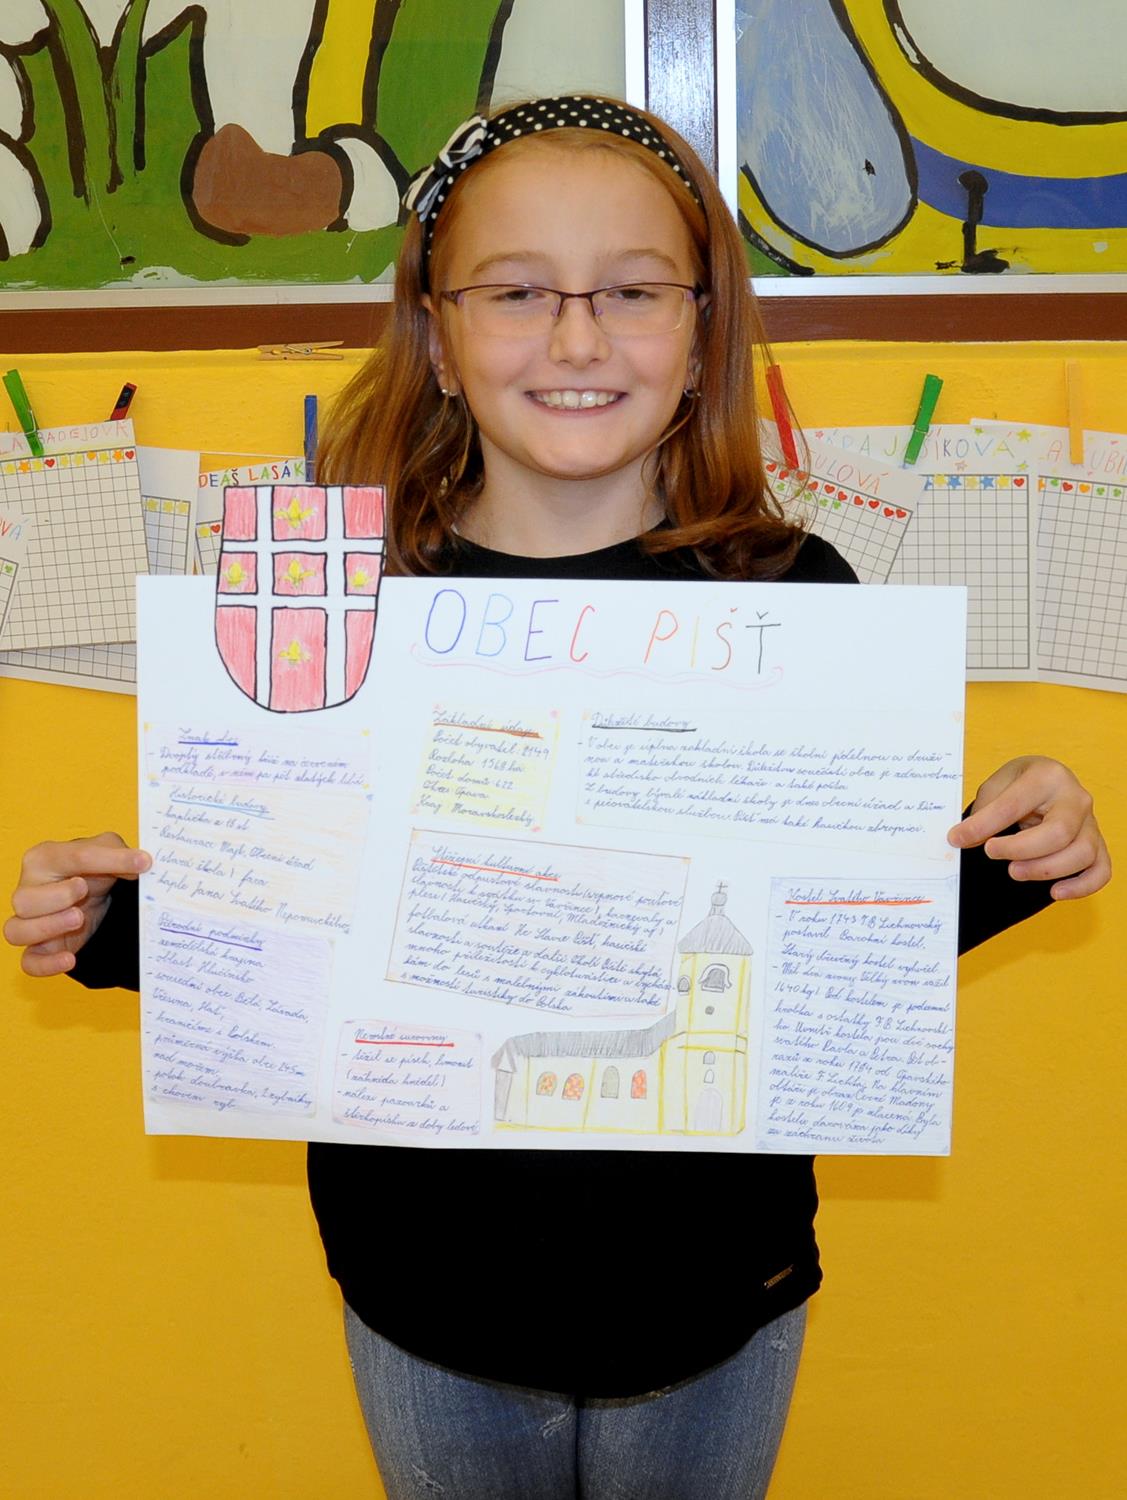 DEÁŠ LASÁK
OBEC PÍŠŤ
Znak obce
- Dvojitý stříbrný kříž na červeném
podkladě, v něm po pět zlatých lilií.
Historické budovy
- kaplička z 18 st
- Restaurace Majk, Obecní úřad
(stará škola) fara
- kaple Jana Svatého Nepomuckého
Přírodní podmínky
- zemědělská krajina
- oblast Hlučínsko
- sousední obce Bělá, Závada,
Vřesina, Hať,
- hraničíme s Polskem.
- průměrná výška obce 245m
nad mořem.
- potok doubravka, 2 rybníky
s chovem ryb.
Základní údaje
Počet obyvatel: 2149
Rozloha 1568 ha
Počet domů 622
Okres Opava
Kraj Moravskoslezský
Důležité budovy
- V obci je úplná základní škola se školní jídelnou a druži-
nou a mateřskou školou. Důležitou součástí obce je zdravotnic-
ké středisko obvodních lékařů a také pošta.
Z budovy bývalé základní školy je dnes obecní úřad a Dům
s pečovatelskou službou. Píšť má také hasičkou zbrojnici.
Stěžejní kulturní akce
Píšťské odpustové slavnosti (srpnové pouťové
slavnosti k svátku sv. Vavřince), karnevaly a
plesy (Hasičský, Sportovní, Mládežnický aj.)
fotbalová utkání Fc Slavie Píšť, hasičské
slavnosti a soutěže a další Okolí Píště skýtá
mnoho příležitostí k cykloturistice a vycház-
kám do lesů s malebnými zákoutími a také
s možností turistiky do Polska
Nerostné suroviny
- těžil se písek, limonit
(záhněda hnědel)
- nálezy pazourků a
štěrkopísku z doby ledové
Kostel Svatého Vavřince
- V roku 1743 F.B Lichnovský
postavil Barokní kostel.
Starý dřevěný kostel vyhořel.
- Měl dva zvony Velký zvon vážil
1640 kg). Pod kostelem je podzemní
hrobka s ostatky F.B Lichnovské-
ho Uvnitř kostela jsou dvě sochy
svatého Pavla a Petra. Pět ob-
razů z roku 1794 od Opavského
malíře F. Lichky Na hlavním
oltáři je obraz Černé Madony
je z roku 1609 je zlacená Byla
kostelu darována jako díky
za záchranu života